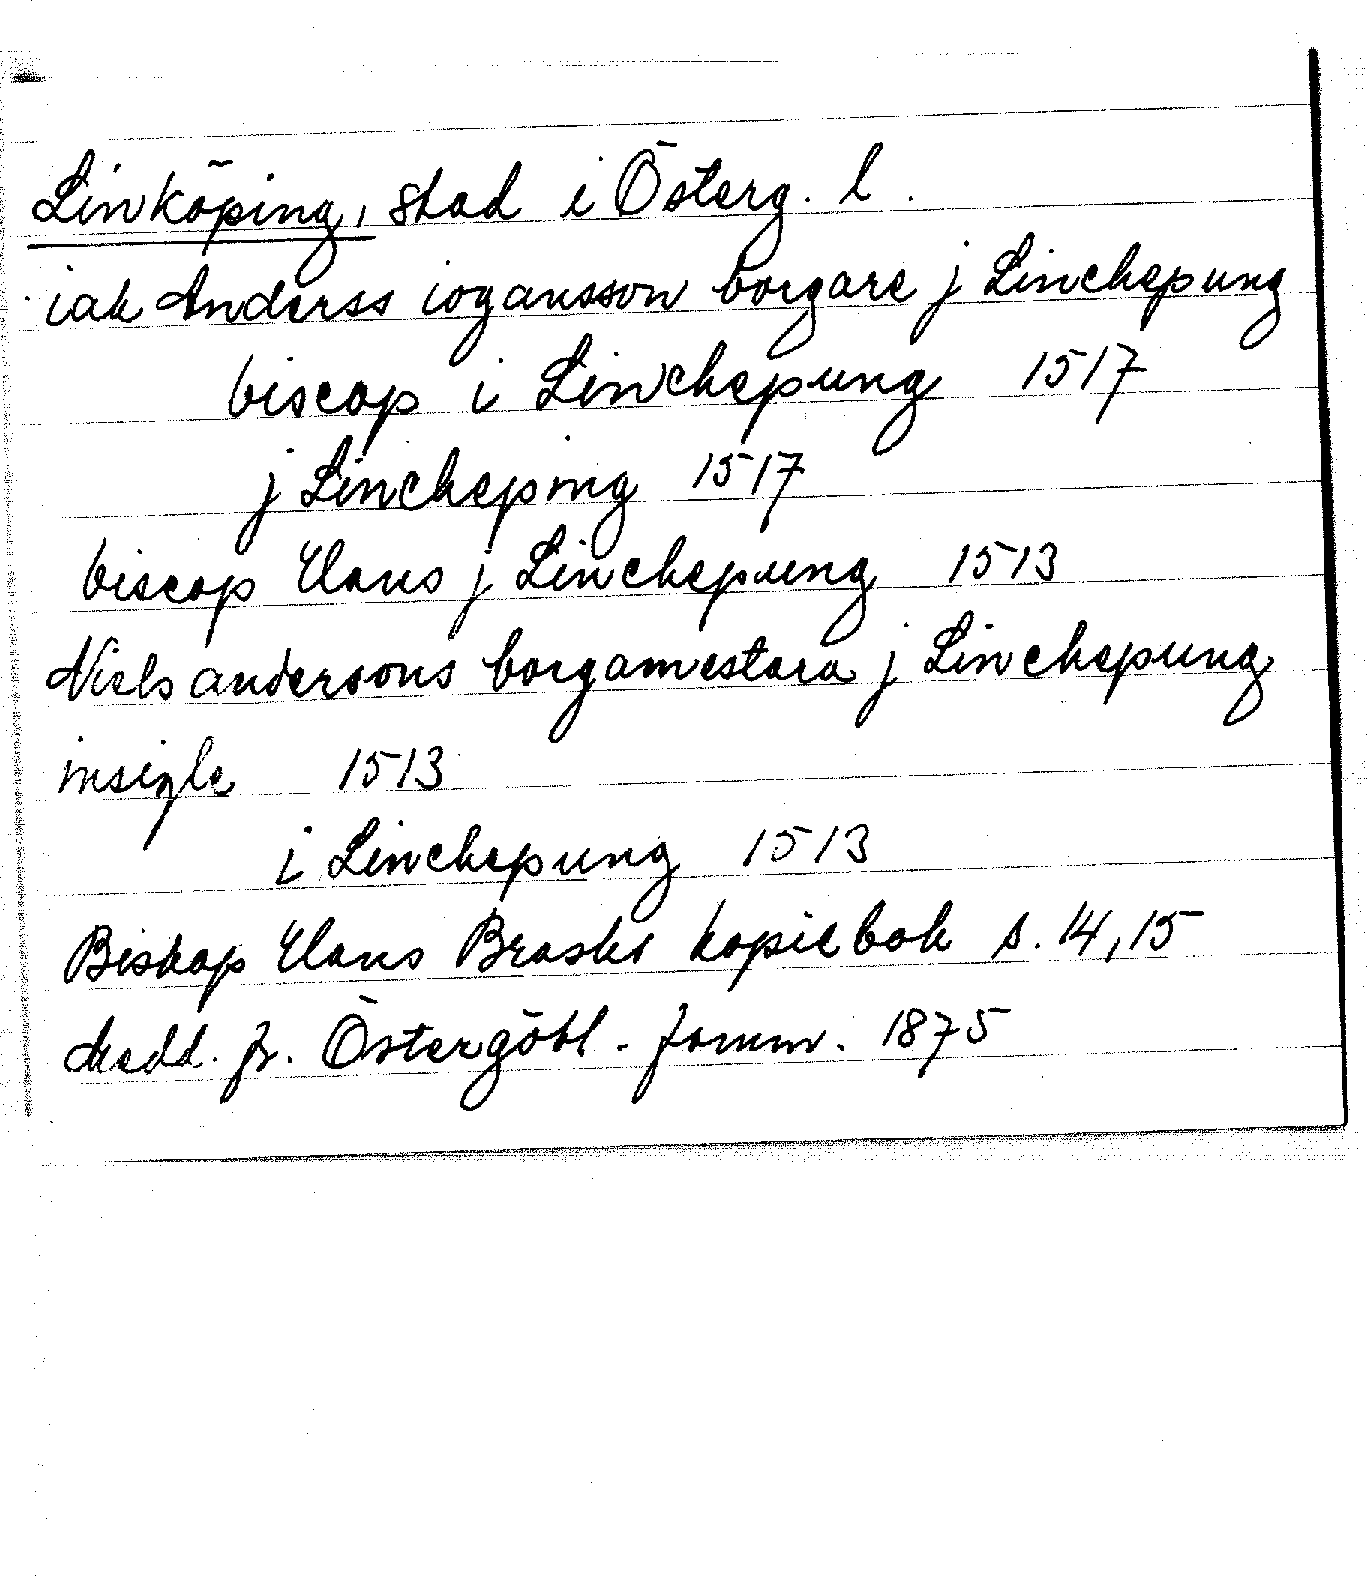 Linköping, stad i Österg. l.
iak Anderss iogansson borgare j Linchepung
biscop i Linchepung 1517
j Lincheping 1517
biscop Hans j Linchepung 1513
Niels andersons borgamestara j Linchepung
insigle 1513
i Linchepung 1513
Biskop Hans Brasks kopiebok s. 14, 15
Medd. fr. Östergötl. fornm. 1875